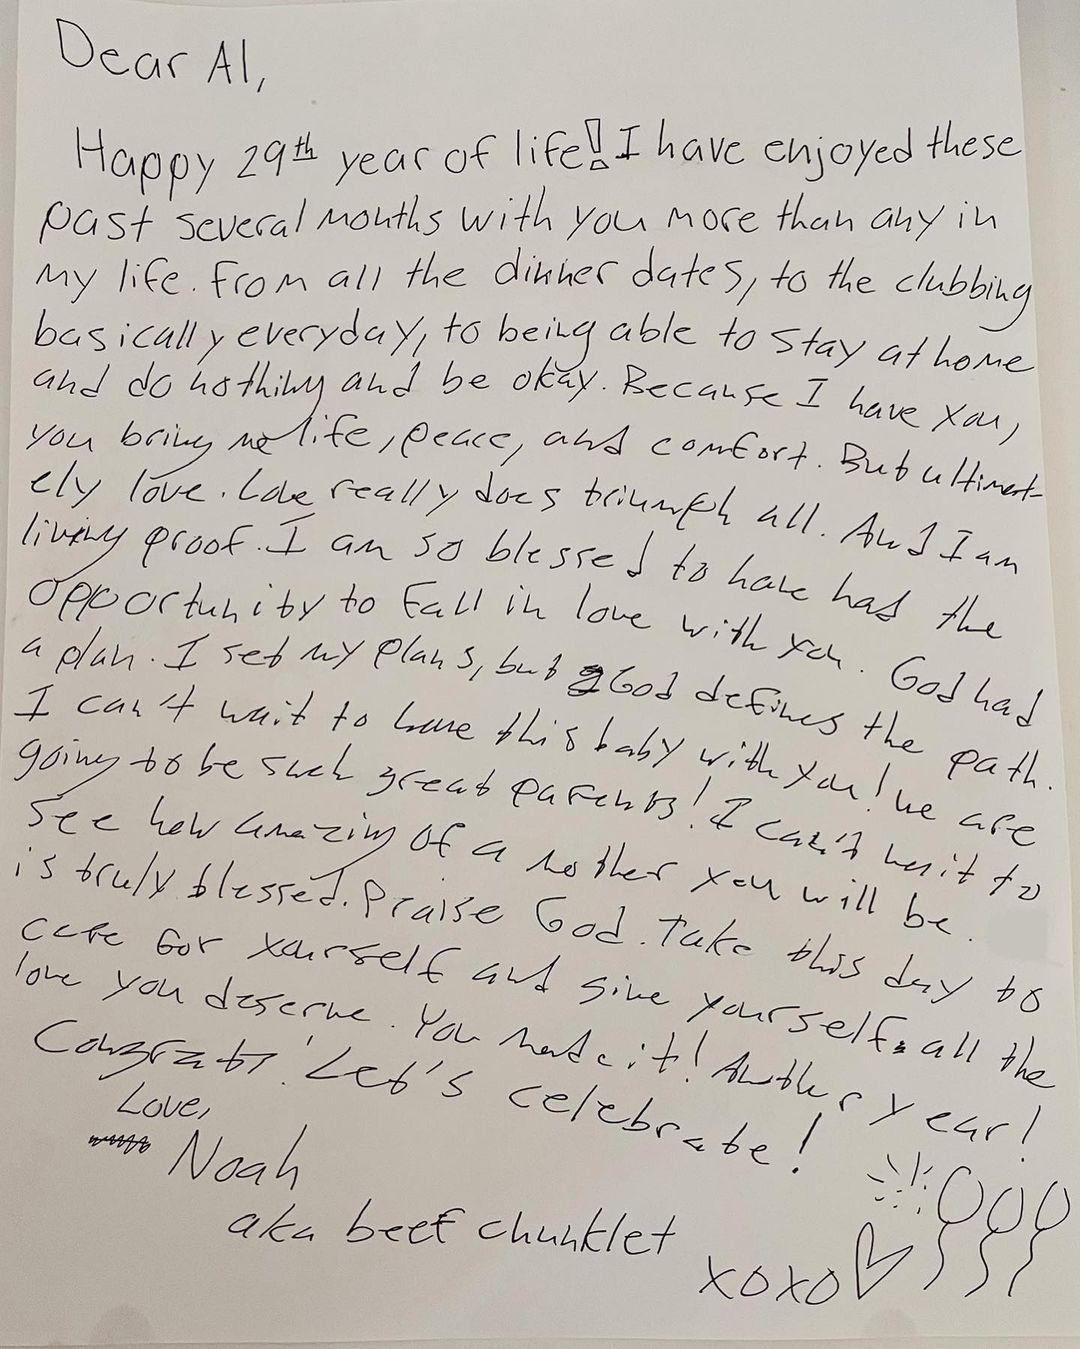 Dear Al,
Happy 29th year of life! I have enjoyed these
past several months with you more than any in
my life. From all the dinner dates, to the clubbing
basically everyday, to being able to stay at home
and do nothing and be okay. Because I have you,
you bring me life, peace, and comfort. But ultimat-
ely love. Love really does triumph all. And I am
living proof. I am so blessed to have had the
opportunity to fall in love with you. God had
a plan. I set my plans, but God defines the path.
I can't wait to have this baby with you! We are
going to be such great parents! I can't wait to
see how amazing of a mother you will be.
is truly blessed. Praise God. Take this day to
care for yourself and give yourself all the
love you deserve. You made it! Another year!
Congrats! Let's celebrate!
Love,
Noah
aka beef chunklet
xoxo